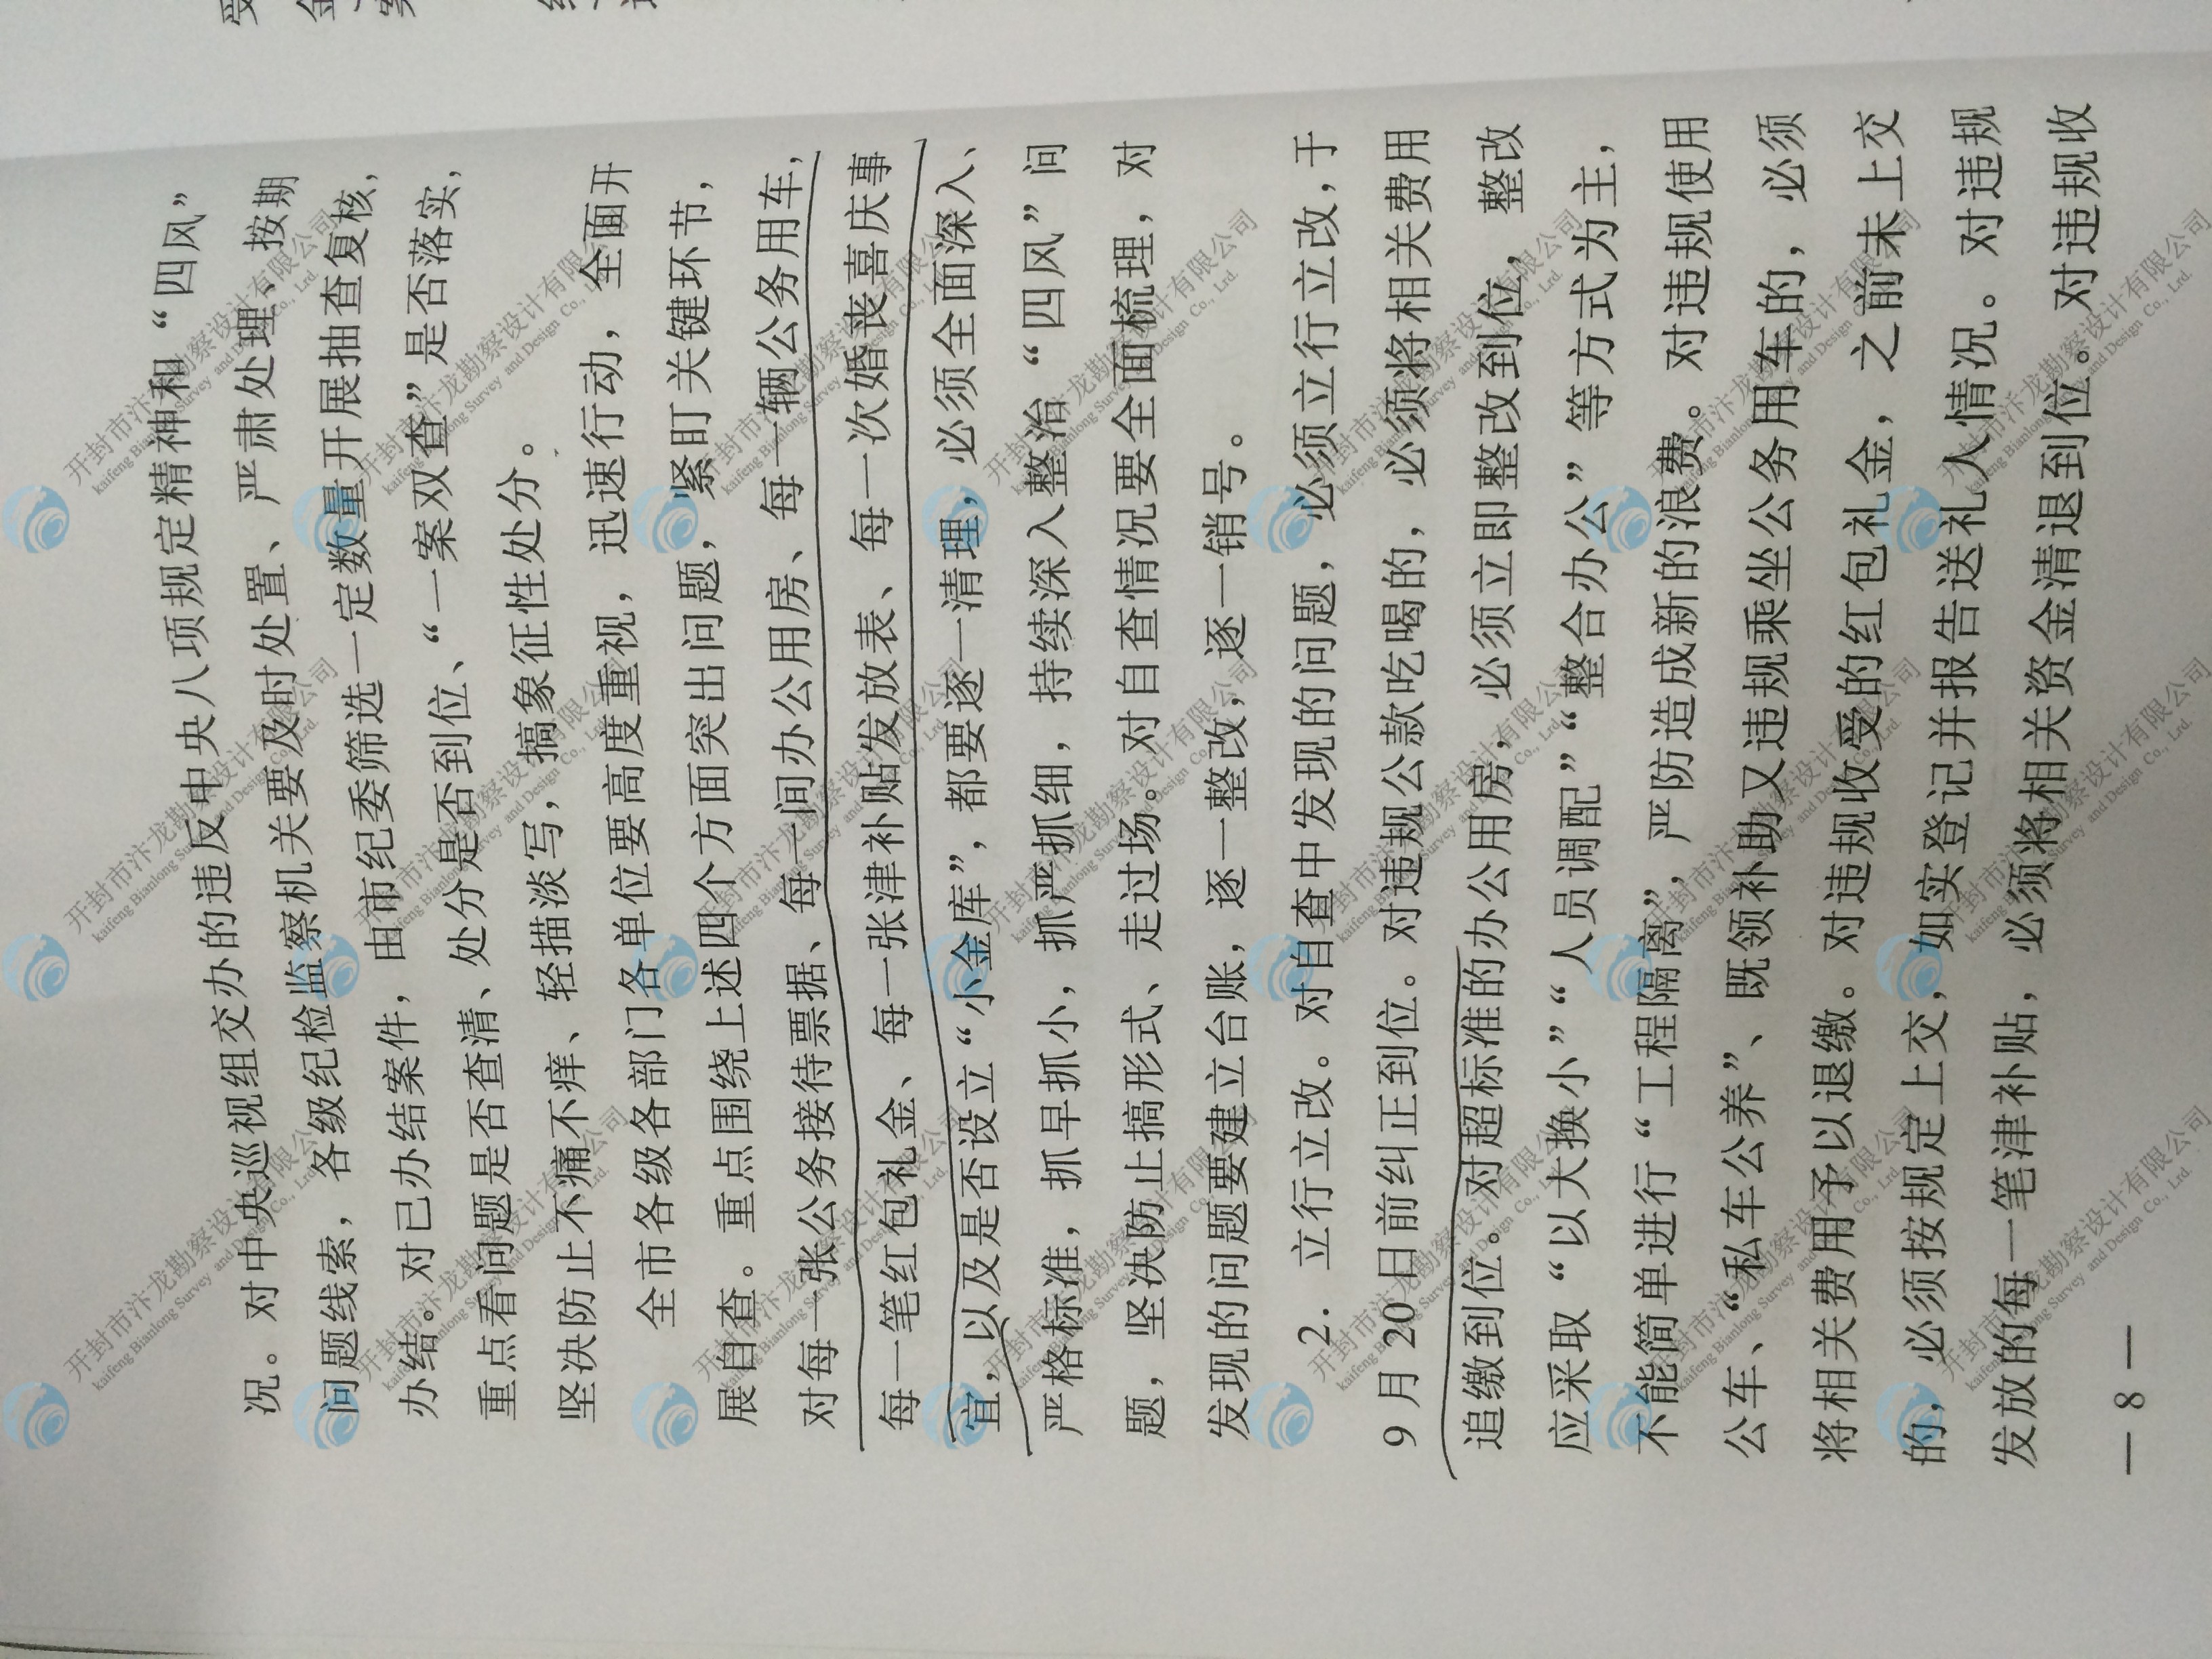 况。对中央巡视组交办的违反中央八项规定精神和“四风”
问题线索，各级纪检监察机关要及时处置、严肃处理、按期
办结。对已办结案件，由市纪委筛选一定数量开展抽查复核，
重点看问题是否查清、处分是否到位、“一案双查”是否落实，
坚决防止不痛不痒、轻描淡写，搞象征性处分。
全市各级各部门各单位要高度重视，迅速行动，全面开
展自查。重点围绕上述四个方面突出问题，紧盯关键环节，
对每一张公务接待票据、每一间办公用房、每一辆公务用车，
每一笔红包礼金、每一张津补贴发放表、每一次婚丧喜庆事
宜，以及是否设立“小金库”，都要逐一清理，必须全面深入、
严格标准，抓早抓小，抓严抓细，持续深入整治“四风”问
题，坚决防止搞形式、走过场。对自查情况要全面梳理，对
发现的问题要建立台账，逐一整改，逐一销号。
2．立行立改。对自查中发现的问题，必须立行立改，于
9月20日前纠正到位。对违规公款吃喝的，必须将相关费用
追缴到位。对超标准的办公用房，必须立即整改到位，整改
应采取“以大换小”“人员调配”“整合办公”等方式为主，
不能简单进行“工程隔离”，严防造成新的浪费。对违规使用
公车、“私车公养”、既领补助又违规乘坐公务用车的，必须
将相关费用予以退缴。对违规收受的红包礼金，之前未上交
的，必须按规定上交，如实登记并报告送礼人情况。对违规
发放的每一笔津补贴，必须将相关资金清退到位。对违规收
— 8 —
开封市汴龙勘察设计有限公司
kaifeng Bianlong Survey and Design Co., Ltd.